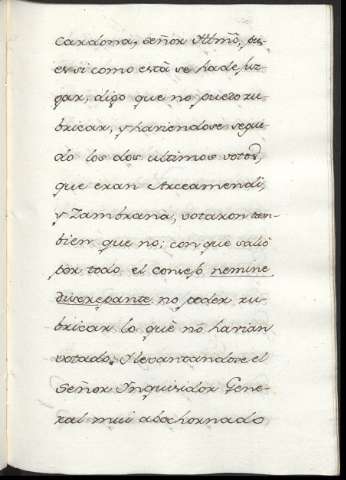 Cardona, señor Illmô, pu-
es si como está se ha de juz
gar, digo que no puedo ru
bricar, y haviendose segui
do los dos ultimos votos,
que eran Arceamendi,
y Zambrana, votaron tan-
bien que no; con que salió
por todo el consejo nemine
discrepante no poder ru-
bricar lo que no havian
votado. Y levantandose el
Señor Inquisidor Gene-
ral mui abochornado